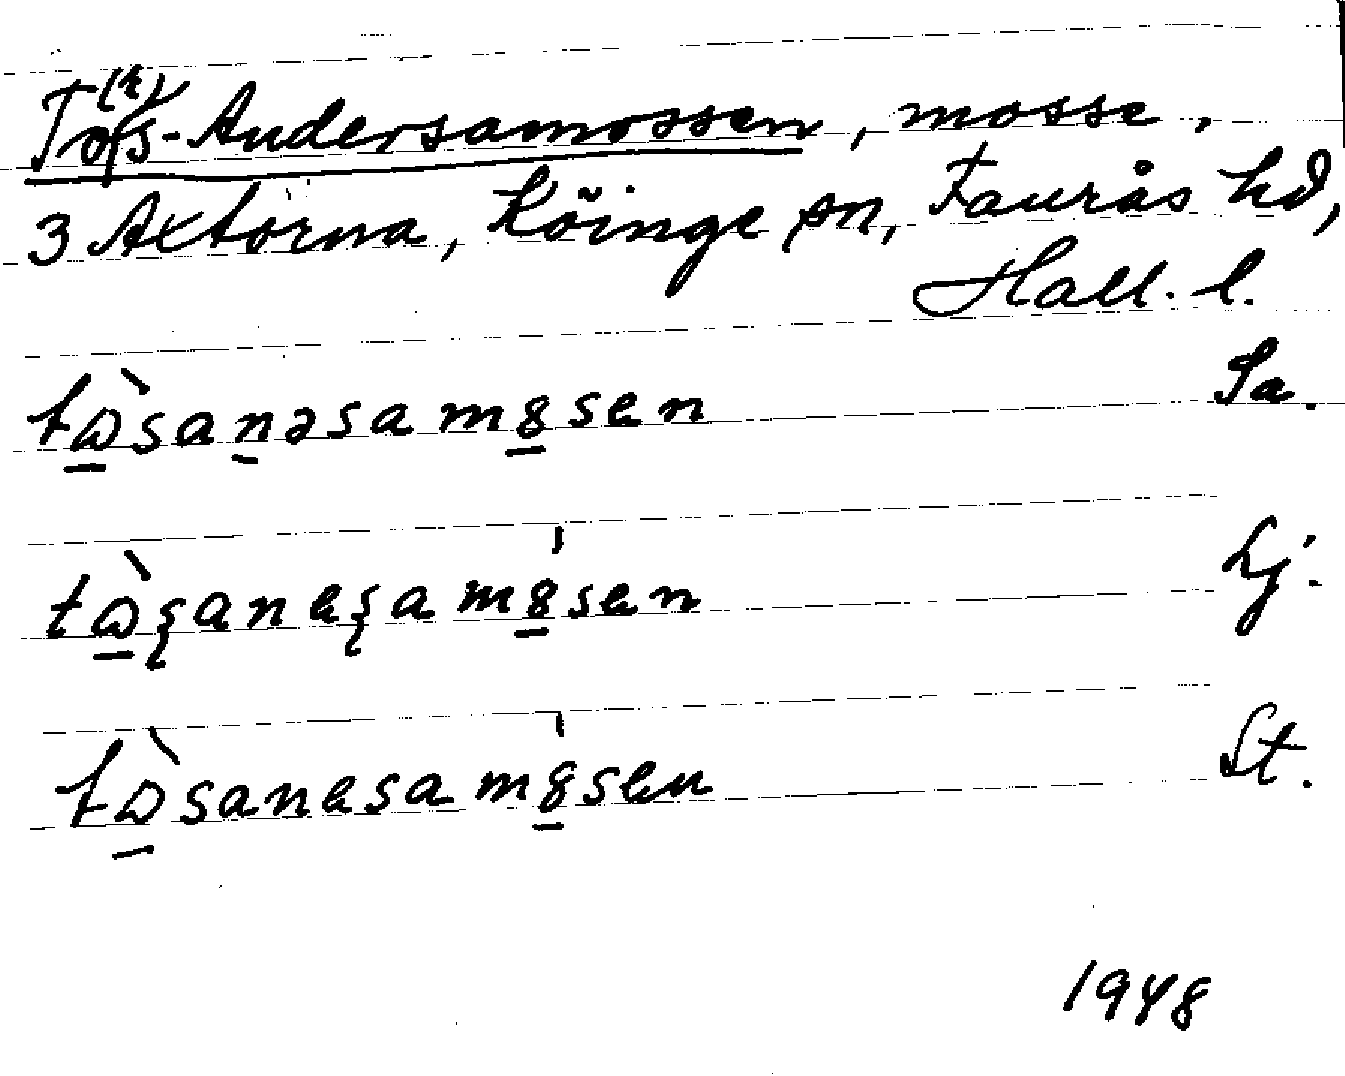 To(r)s-Andersamossen, mosse.
3 Axtorna, Köinge sn, Faurås hd,
Hall. l.
tɷ̠̀san̠əsamȣ̠sen Sa.
tɷ̠̀ʂaneʂamȣ̠́sen Lj.
tɷ̠̀sanesamȣ̠́sen St.
1948